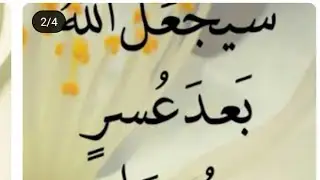 2/4
سيجعل الله
بَعدَ عُسرٍ